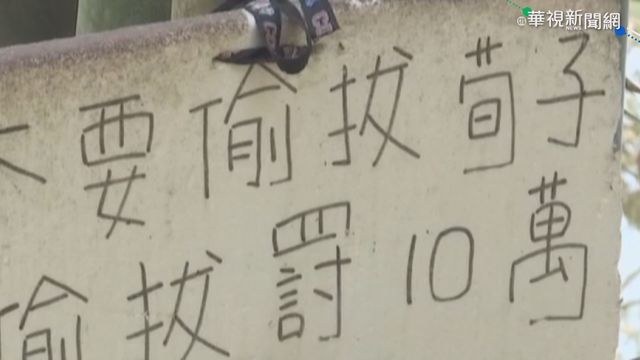 華視新聞網
要偷拔荀子
偷拔罰10萬